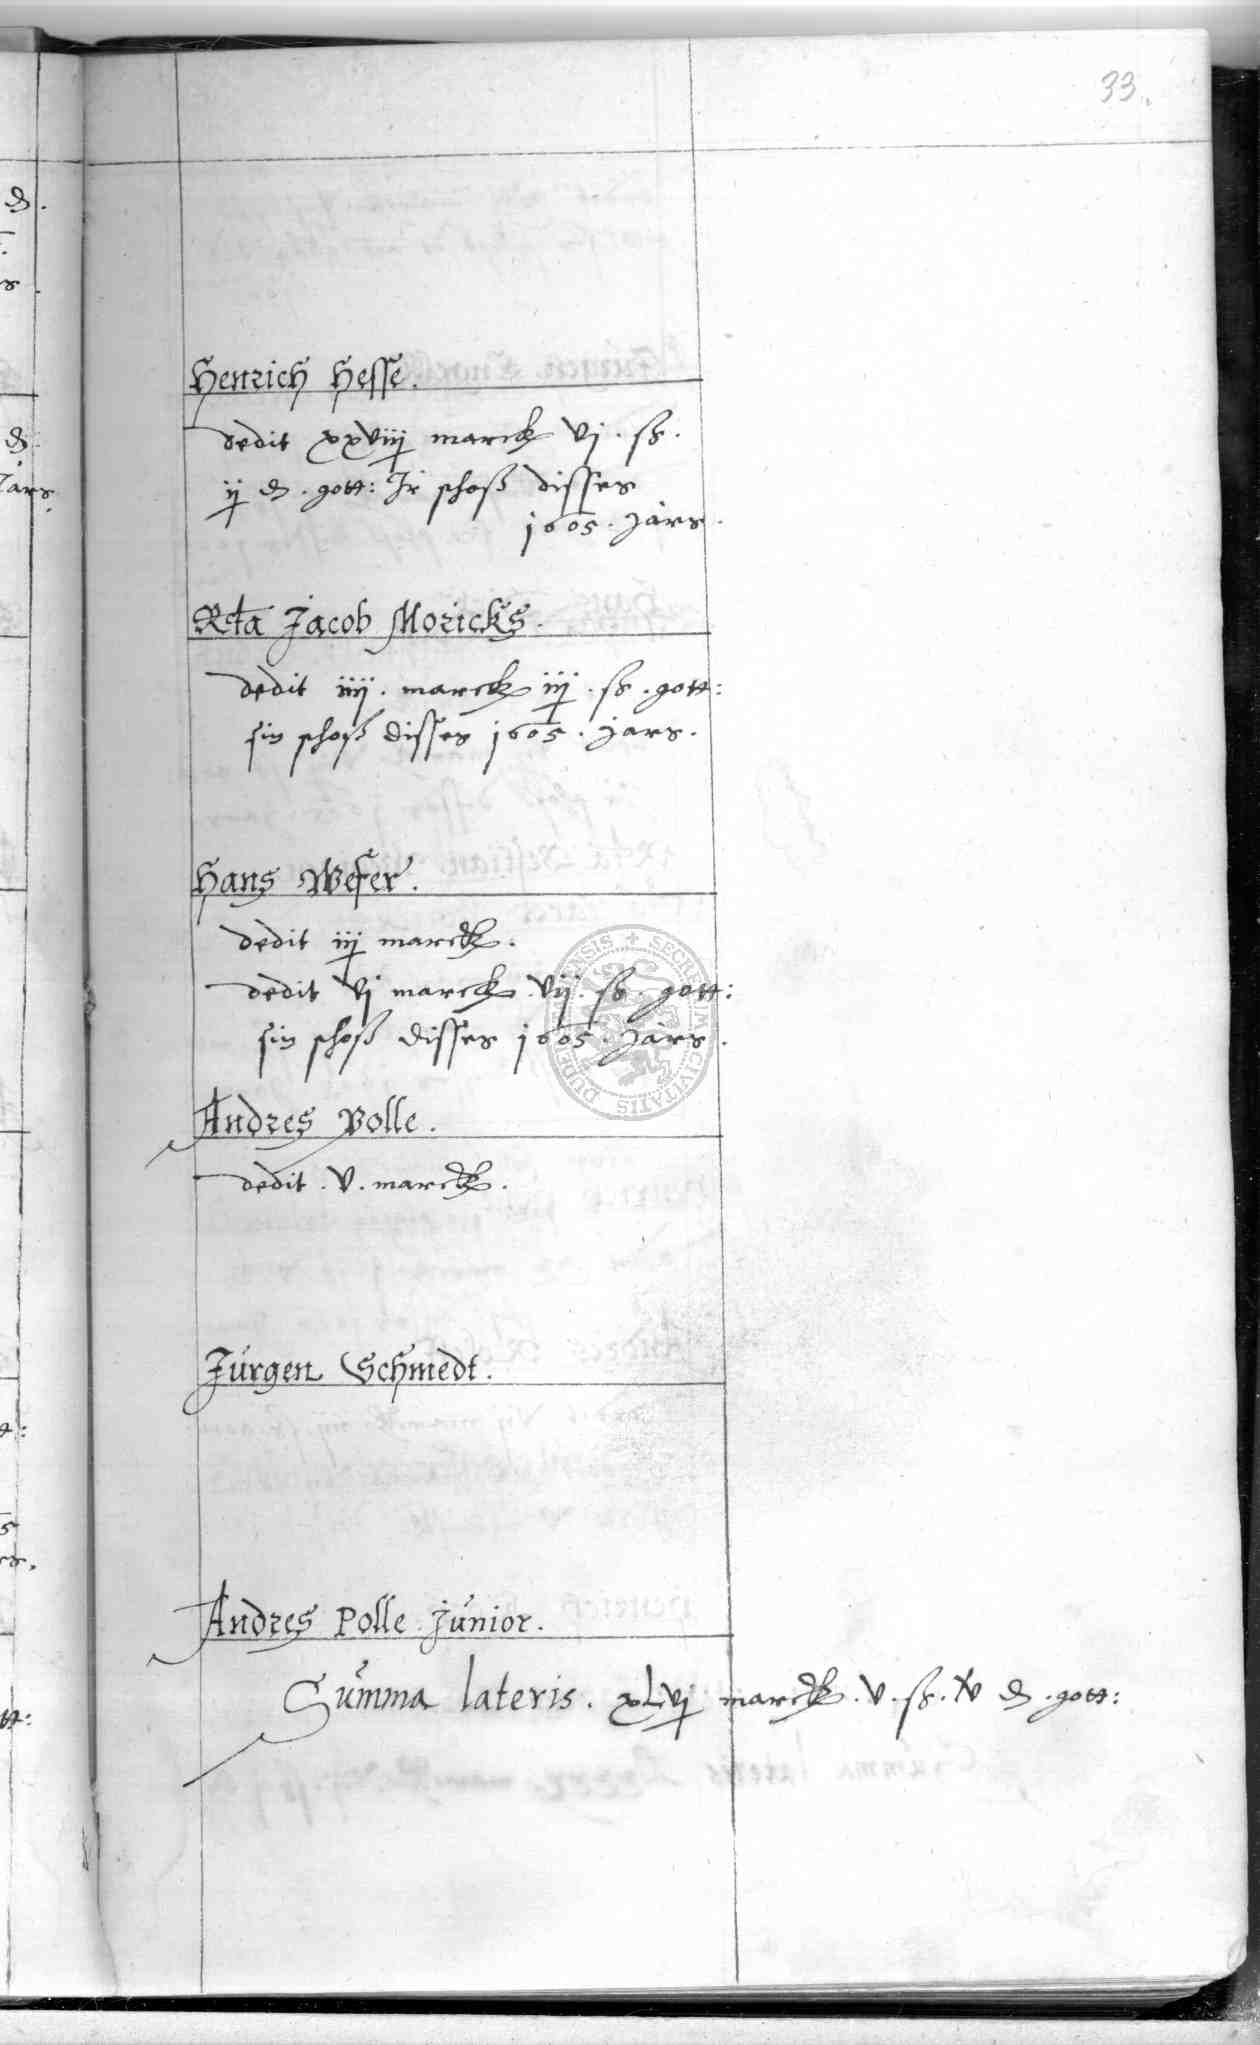 33.
Henrich Hesse.
dedit xxviij marck vj. ß.
ij ₰. gott: Ir schoß disses
1605. Jars.
Rcta Jacob Moricks.
dedit iiij. marck iij. ß. gott:
sin schoß disses 1605. Jars.
Hans Wefer.
dedit iij marck.
dedit vj marck. vij. ß. gott:
sin schoß disses 1605. Jars.
Andres Polle.
dedit. v. marck.
Jürgen Schmedt.
Andres Polle Junior.
Summa lateris. xLvj marck. v. ß. ₰. gott:
SECRETUM CIVITATIS